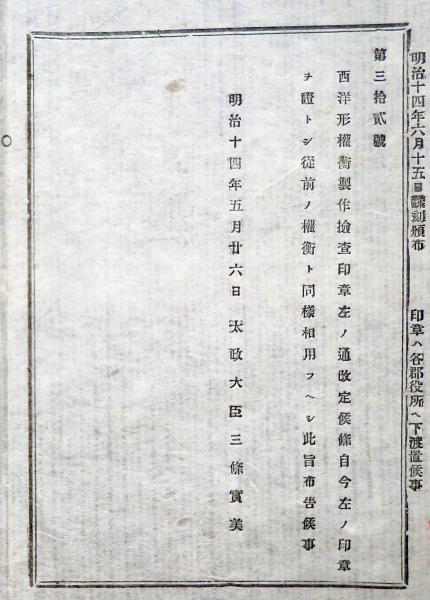 明治十四年六月十五日飜刻頒布　印章ハ各郡役所ヘ下渡置候事
第三拾貳號
西洋形權衡製作撿査印章左ノ通改定候條自今左ノ印章
ヲ證トシ從前ノ權衡ト同樣相用フヘシ此旨布告候事
明治十四年五月廿六日　太政大臣三條實美